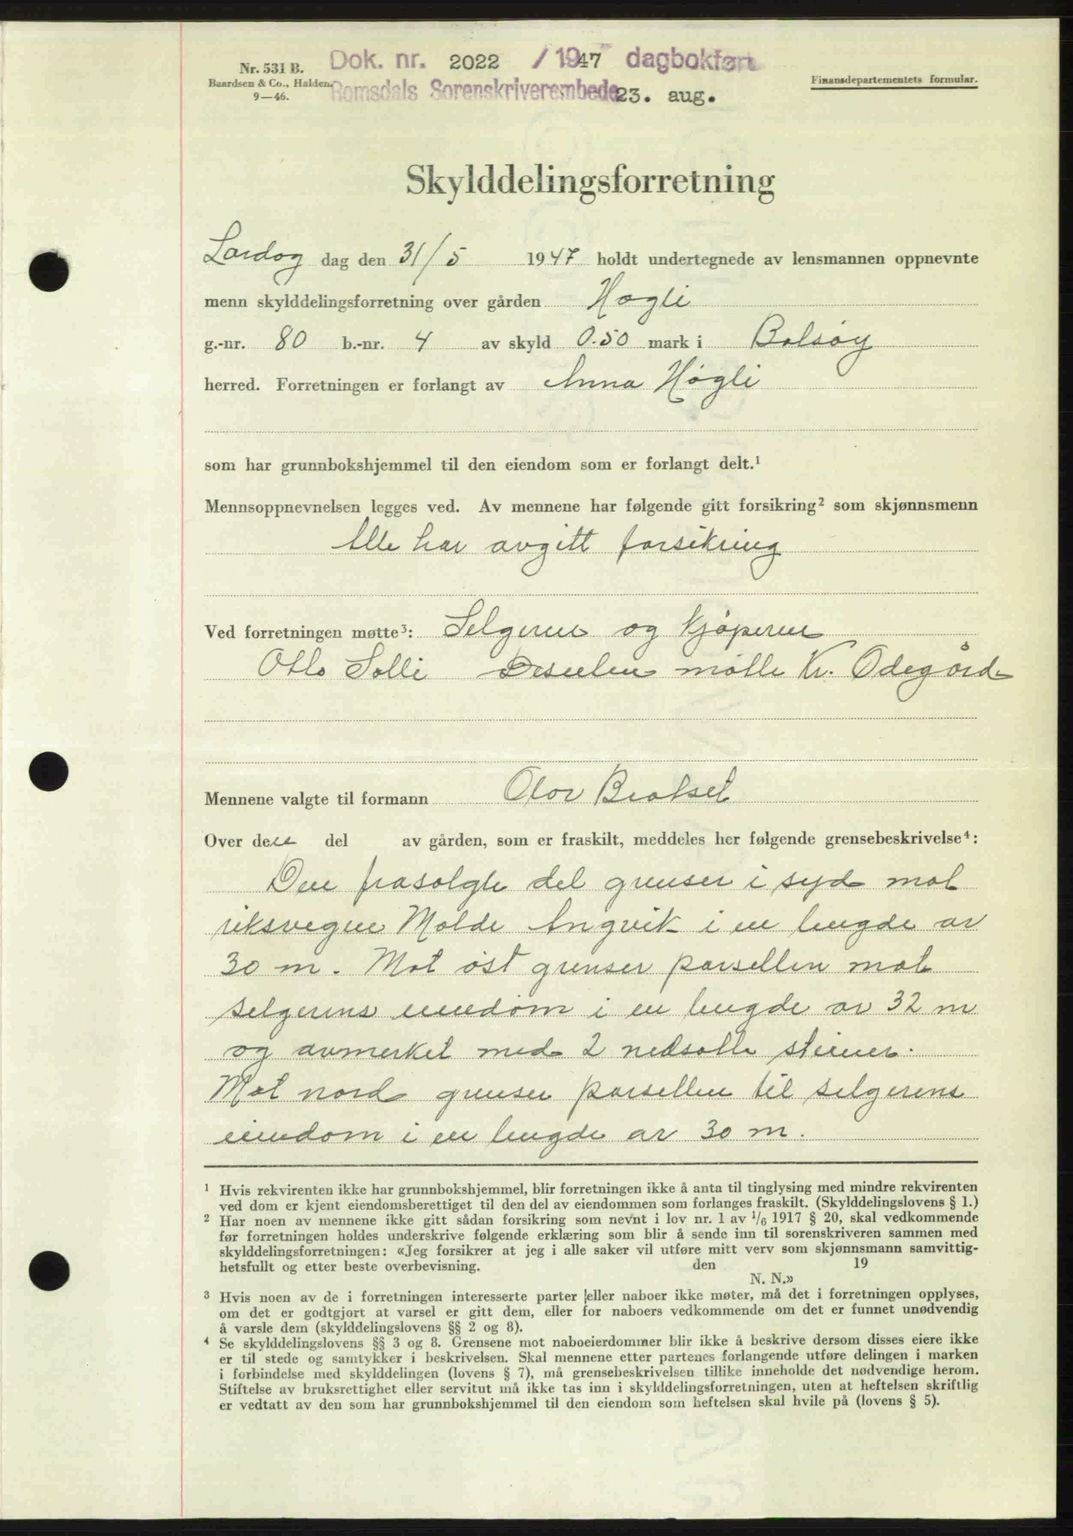 Nr. 531 B.
Baardsen & Co., Halden.
9—46.
Dok. nr. 2022 / 1947 dagbokført
Romsdals Sorenskriverembede 23. aug.
Finansdepartementets formular.
Skylddelingsforretning
Lørdag dag den 31/5 1947 holdt undertegnede av lensmannen oppnevnte
menn skylddelingsforretning over gården Høgli
g.-nr. 80 b.-nr. 4 av skyld 0.50 mark i Bolsøy
herred. Forretningen er forlangt av Anna Høgli
som har grunnbokshjemmel til den eiendom som er forlangt delt.¹
Mennsoppnevnelsen legges ved. Av mennene har følgende gitt forsikring² som skjønnsmenn
Alle har avgitt forsikring
Ved forretningen møtte³: Selgeren og kjøperen
Otto Solli Desuten møtte Kr. Ødegård
Mennene valgte til formann Olov
Over den del av gården, som er fraskilt, meddeles her følgende grensebeskrivelse⁴:
Den frasolgte del grenser i syd mot
riksvegen Molde Angvik i en lengde av
30 m. Mot øst grenser parsellen mot
selgerens eiendom i en lengde av 32 m
og avmerket med 2 nedsatte steiner.
Mot nord grenser parsellen til selgerens
eiendom i en lengde av 30 m.
¹ Hvis rekvirenten ikke har grunnbokshjemmel, blir forretningen ikke å anta til tinglysing med mindre rekvirenten
ved dom er kjent eiendomsberettiget til den del av eiendommen som forlanges fraskilt. (Skylddelingslovens § 1.)
² Har noen av mennene ikke gitt sådan forsikring som nevnt i lov nr. 1 av 1/6 1917 § 20, skal vedkommende
før forretningen holdes underskrive følgende erklæring som blir å sende inn til sorenskriveren sammen med
skylddelingsforretningen: «Jeg forsikrer at jeg i alle saker vil utføre mitt verv som skjønnsmann samvittig-
hetsfullt og etter beste overbevisning. den 19
N. N.»
³ Hvis noen av de i forretningen interesserte parter eller naboer ikke møter, må det i forretningen opplyses,
om det er godtgjort at varsel er gitt dem, eller for naboers vedkommende om det er funnet unødvendig
å varsle dem (skylddelingslovens §§ 2 og 8).
⁴ Se skylddelingslovens §§ 3 og 8. Grensene mot naboeierdommer blir ikke å beskrive dersom disses eiere ikke
er til stede og samtykker i beskrivelsen. Skal mennene etter partenes forlangende utføre delingen i marken
i forbindelse med skylddelingen (lovens § 7), må grensebeskrivelsen tillike inneholde det nødvendige herom.
Stiftelse av bruksrettighet eller servitut må ikke tas inn i skylddelingsforretningen, uten at heftelsen skriftlig
er vedtatt av den som har grunnbokshjemmel til den eiendom som heftelsen skal hvile på (lovens § 5).